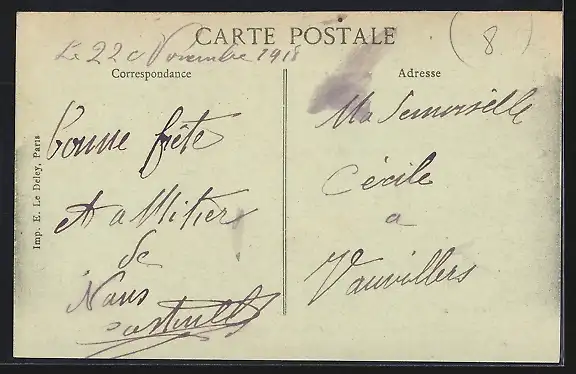 CARTE POSTALE
Le 22 Novembre 1918
8
Correspondance
Adresse
Bonne fête
et amitier
de
Nous
Mademoiselle
Cécile
a
Vauvillers
Imp. E. Le Deley, Paris